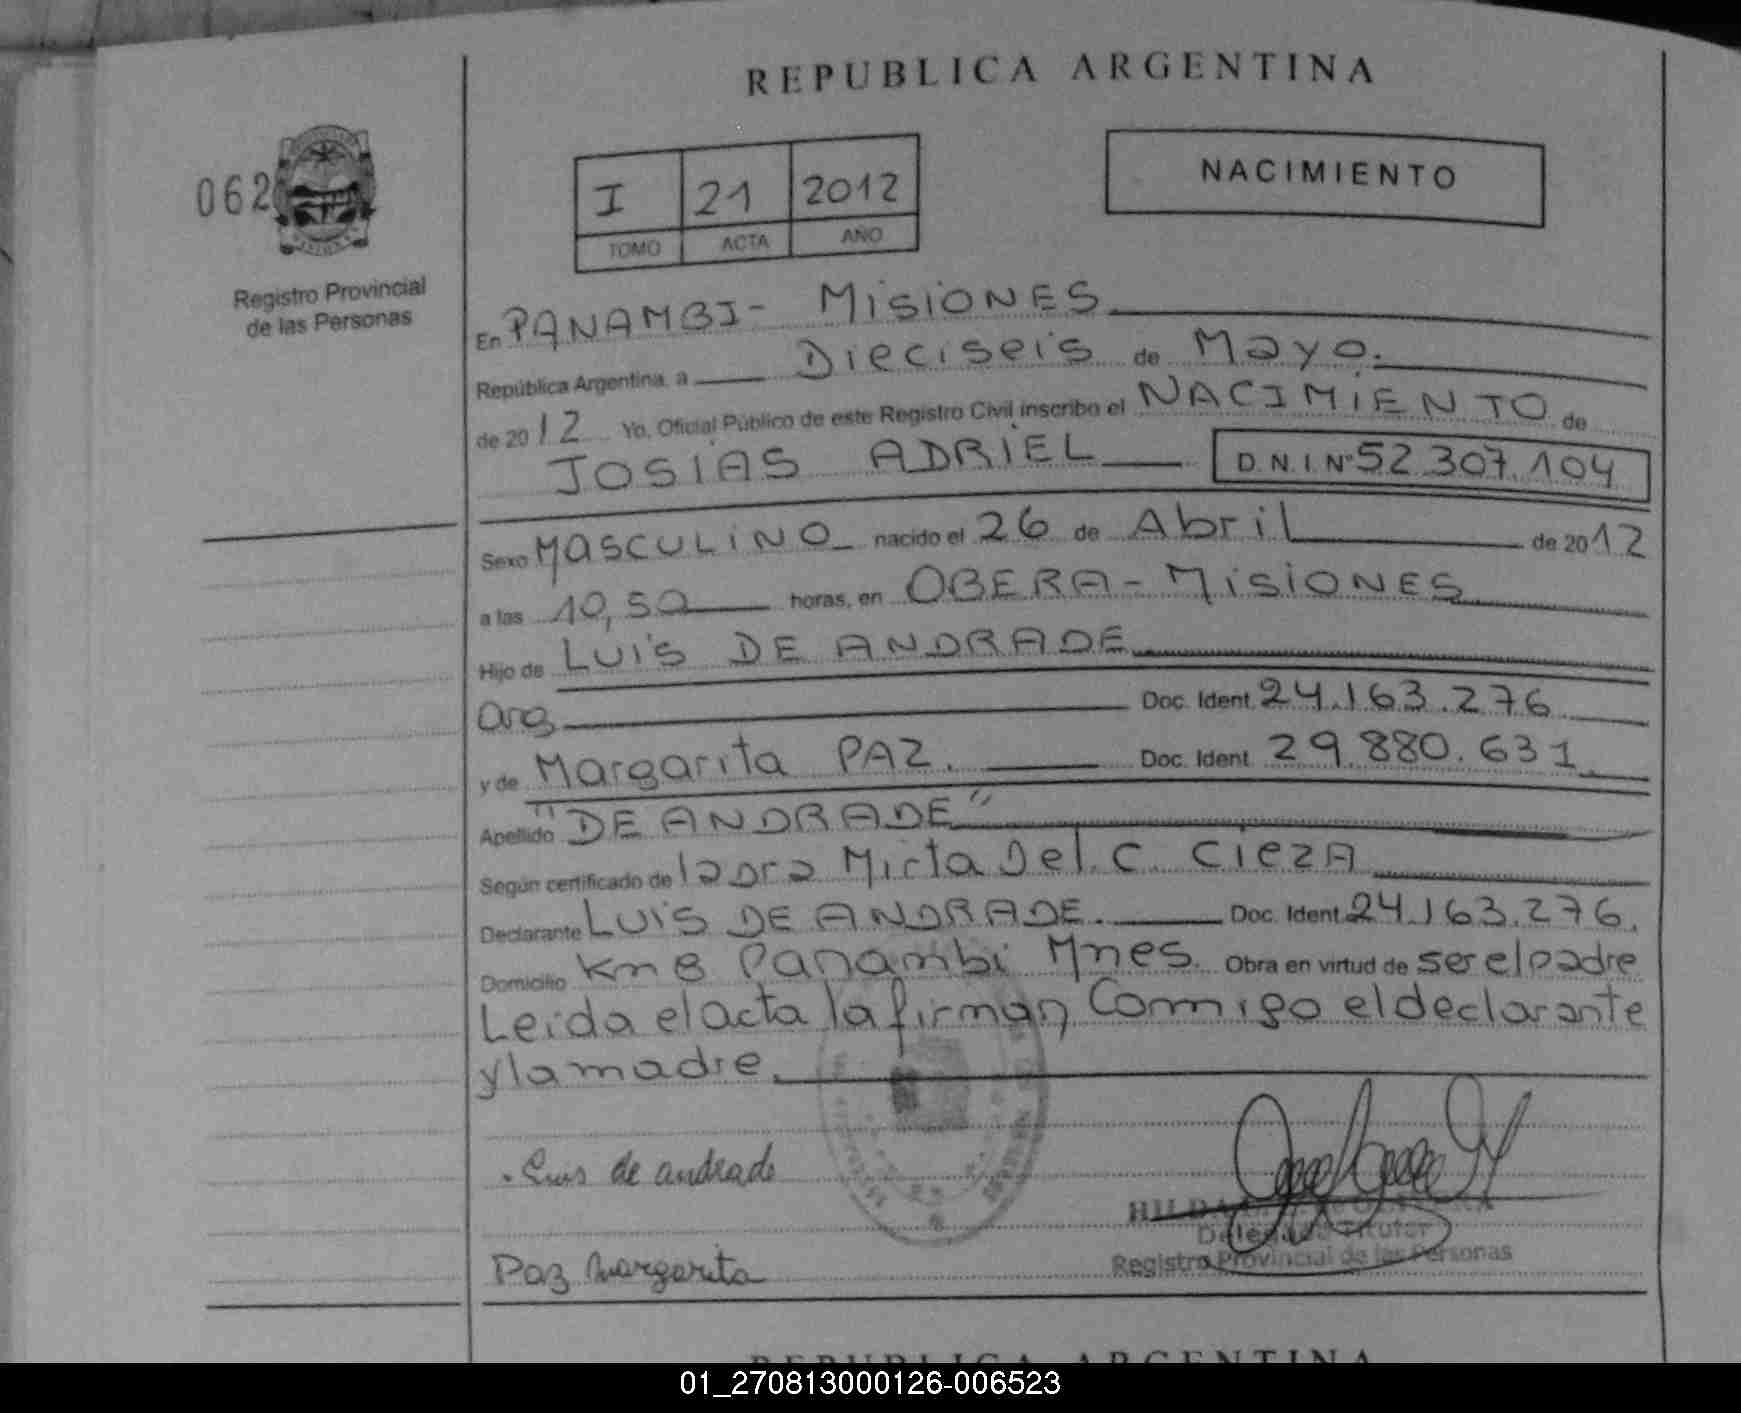 REPUBLICA ARGENTINA
062
Registro Provincial
de las Personas
I 21 2012
TOMO ACTA AÑO
NACIMIENTO
En PANAMBI - MISIONES
República Argentina, a Dieciseis de Mayo.
de 2012 Yo, Oficial Público de este Registro Civil inscribo el NACIMIENTO de
JOSIAS ADRIEL D.N.I. Nº 52.307.104
Sexo MASCULINO nacido el 26 de Abril de 2012
a las 10,50 horas, en OBERA - MISIONES
Hijo de LUIS DE ANDRADE
Arg Doc. Ident. 24.163.276
y de Margarita PAZ. Doc. Ident. 29.880.631
Apellido "DE ANDRADE"
Según certificado de la Dra Mirta Del. C. CIEZA
Declarante LUIS DE ANDRADE. Doc. Ident. 24.163.276.
Domicilio Km 8 Panambi Mnes. Obra en virtud de ser el padre
Leida el acta la firman Conmigo el declarante
y la madre.
Luis de andrade
HILDA
Delegada Titular
Registro Provincial de las Personas
Paz Margarita
REPUBLICA ARGENTINA
01_270813000126-006523